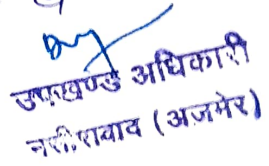 उपखण्ड अधिकारी
नसीराबाद (अजमेर)